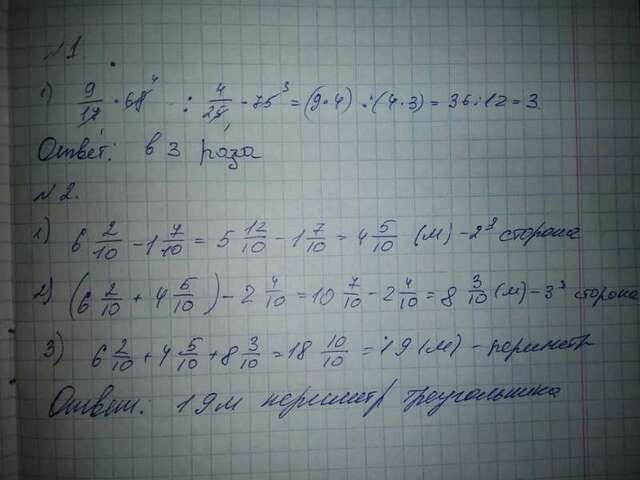 №1.
1) 9/17 · 68 4 : 4/25 · 75 3 = (9·4) : (4·3) = 36:12 = 3
Ответ: в 3 раза
№2.
1) 6 2/10 - 1 7/10 = 5 12/10 - 1 7/10 = 4 5/10 (м) - 2я сторона
2) (6 2/10 + 4 5/10) - 2 4/10 = 10 7/10 - 2 4/10 = 8 3/10 (м) - 3я сторона
3) 6 2/10 + 4 5/10 + 8 3/10 = 18 10/10 = 19 (м) - периметр
Ответ: 19м периметр треугольника